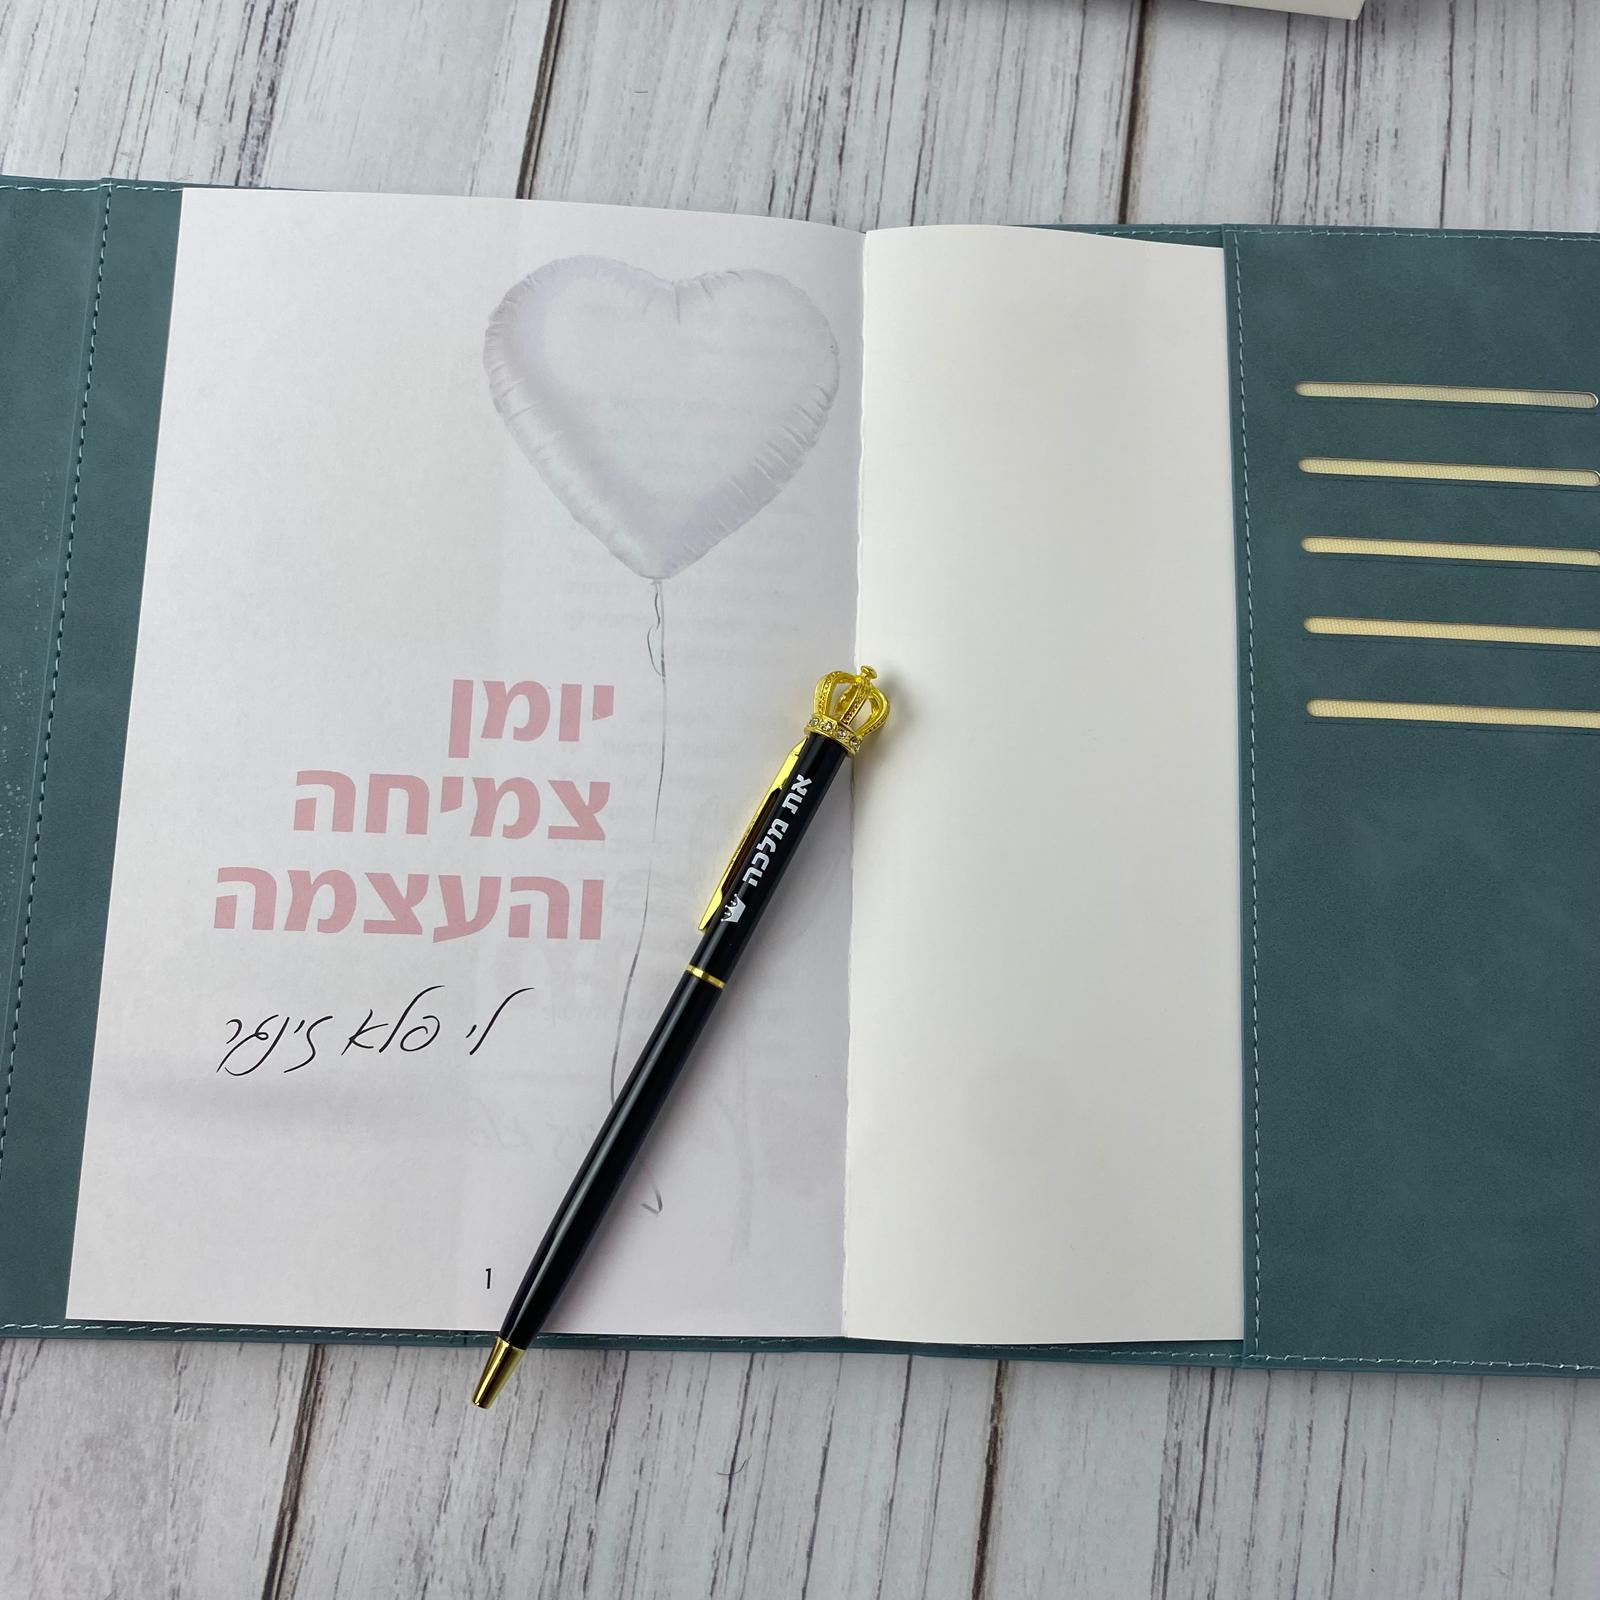 יומן
צמיחה
והעצמה
לי פלא זינגר
1
את מלכה